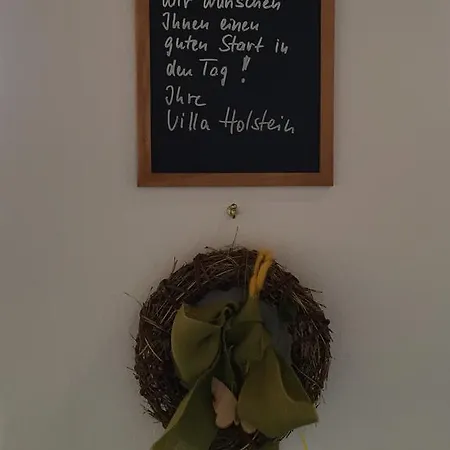 Wir wünschen
Ihnen einen
guten Start in
den Tag !
Ihre
Villa Holstein